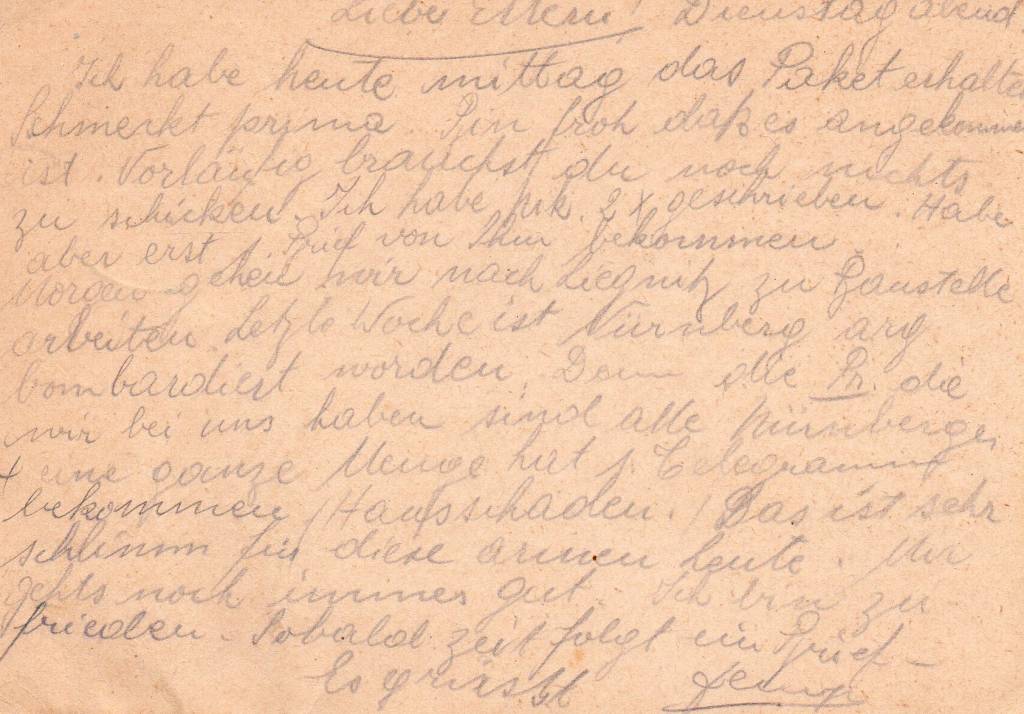 Liebe Eltern! Dienstag abend
Ich habe heute mittag das Paket erhalten
Schmeckt prima. Bin froh daß es angekommen
ist. Vorläufig brauchst du noch nichts
zu schicken. Ich habe 2 x geschrieben. Habe
aber erst 1 Brief von bekommen.
Morgen gehen wir nach Liegnitz zu Baustelle
arbeiten. Letzte Woche ist Nürnberg arg
bombardiert worden. Denn die die
wir bei uns haben sind alle Nürnberger
+ eine ganze Menge hat 1 Telegramm
bekommen /Hausschaden./ Das ist sehr
schlimm für diese armen Leute. Mir
gehts noch immer gut. Ich bin zu
frieden - Sobald zeit folgt ein Brief -
Es grüsst